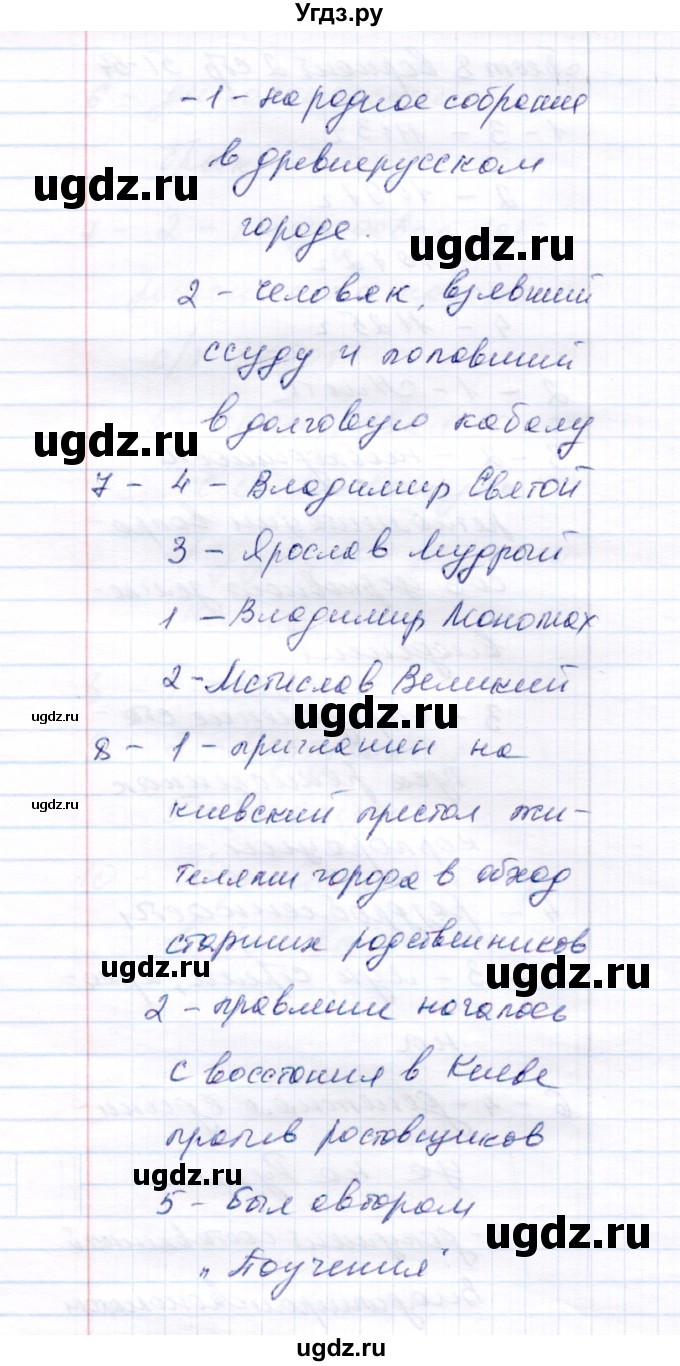 Угдз.ру
- 1 - народное собрание
в древнерусском
городе.
2 - человек, взявший
ссуду и попавший
в долговую кабалу
7 - 4 - Владимир Святой
3 - Ярослав Мудрый
1 - Владимир Мономах
2 - Мстислав Великий
8 - 1 - приглашен на
киевский престол жи-
телями города в обход
старших родственников
2 - правление началось
с восстания в Киеве
против ростовщиков
5 - был автором
"Поучения"
ugdz.ru
ugdz.ru
ugdz.ru
ugdz.ru
ugdz.ru
ugdz.ru
ugdz.ru
ugdz.ru
ugdz.ru
ugdz.ru
ugdz.ru